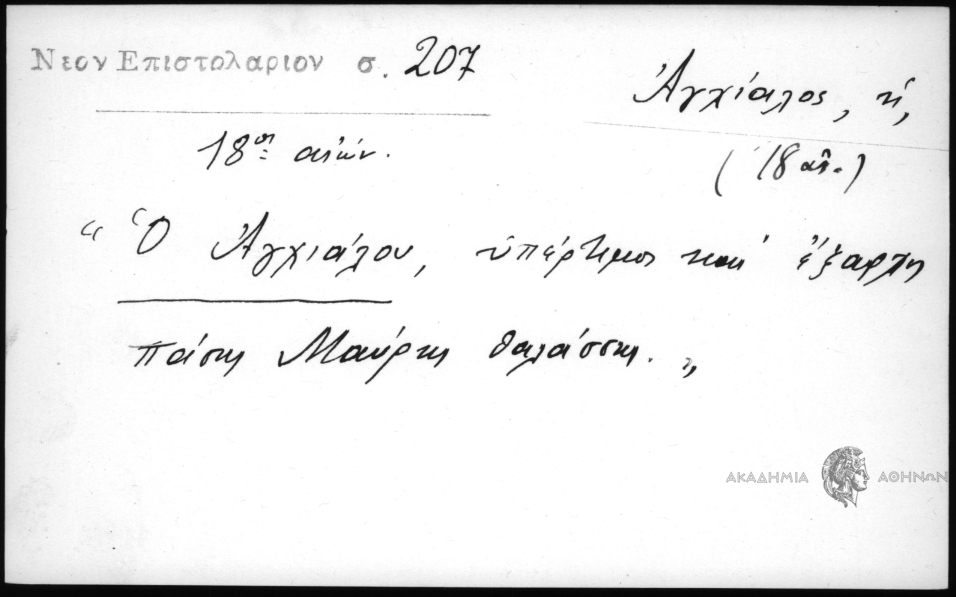 Νεον Επιστολαριον σ. 207
Ἀγχίαλος, ἡ,
18ος αἰών.
(18 αἰ.)
“Ὁ Ἀγχιάλου, ὑπέρτιμος καὶ ἔξαρχος
πάσης Μαύρης θαλάσσης.„
ΑΚΑΔΗΜΙΑ ΑΘΗΝΩΝ